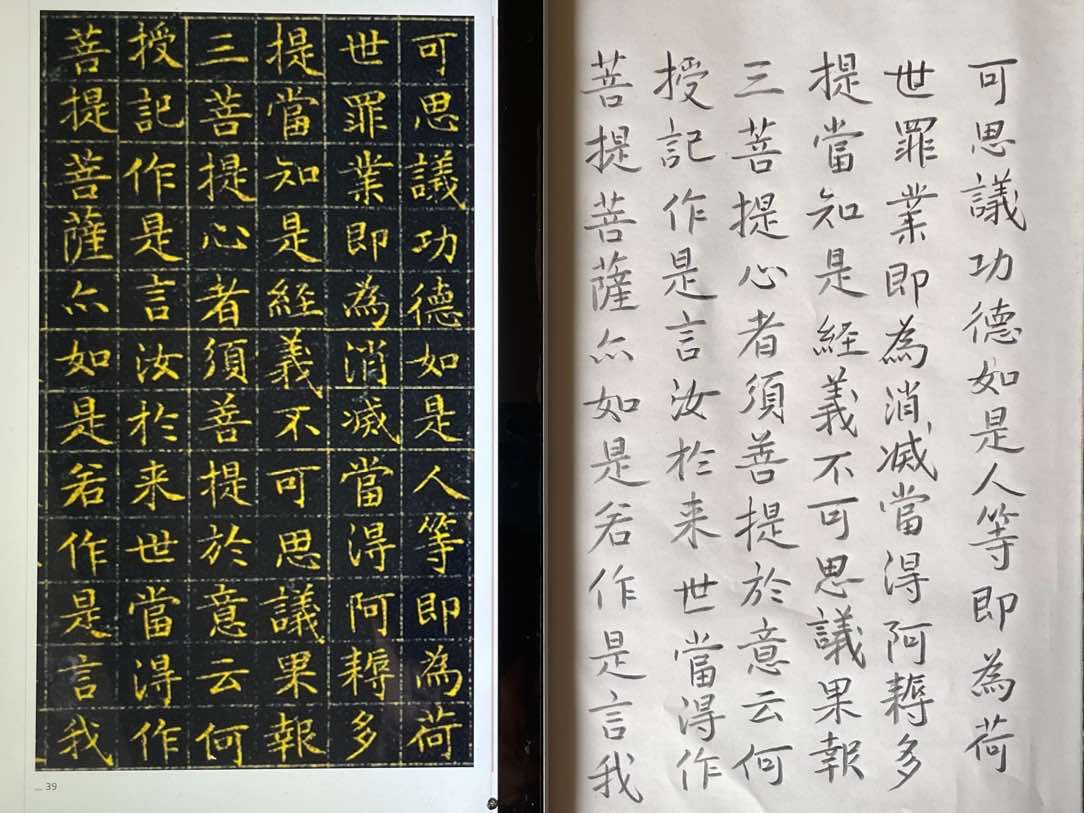 可思議功德如是人等即為荷
世罪業即為消滅當得阿耨多
提當知是經義不可思議果報
三菩提心者須善提於意云何
授記作是言汝於来世當得作
菩提菩薩亦如是若作是言我
39
可思議功德如是人等即為荷
世罪業即為消滅當得阿耨多
提當知是經義不可思議果報
三菩提心者須善提於意云何
授記作是言汝於来世當得作
菩提菩薩亦如是若作是言我